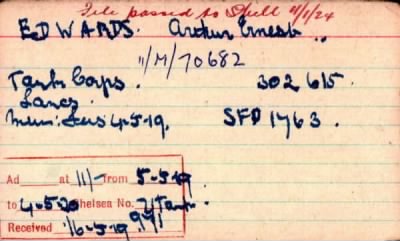 File passed to Shell 11/1/24
EDWARDS. Arthur Ernest
11/M/70682
Tank Corps. 302615.
Lancs.
4-5-19. SFD 1763.
Ad at 11/- from 5-5-19
to 4-5-20 Chelsea No. 2/Tank.
Received 16-5-19